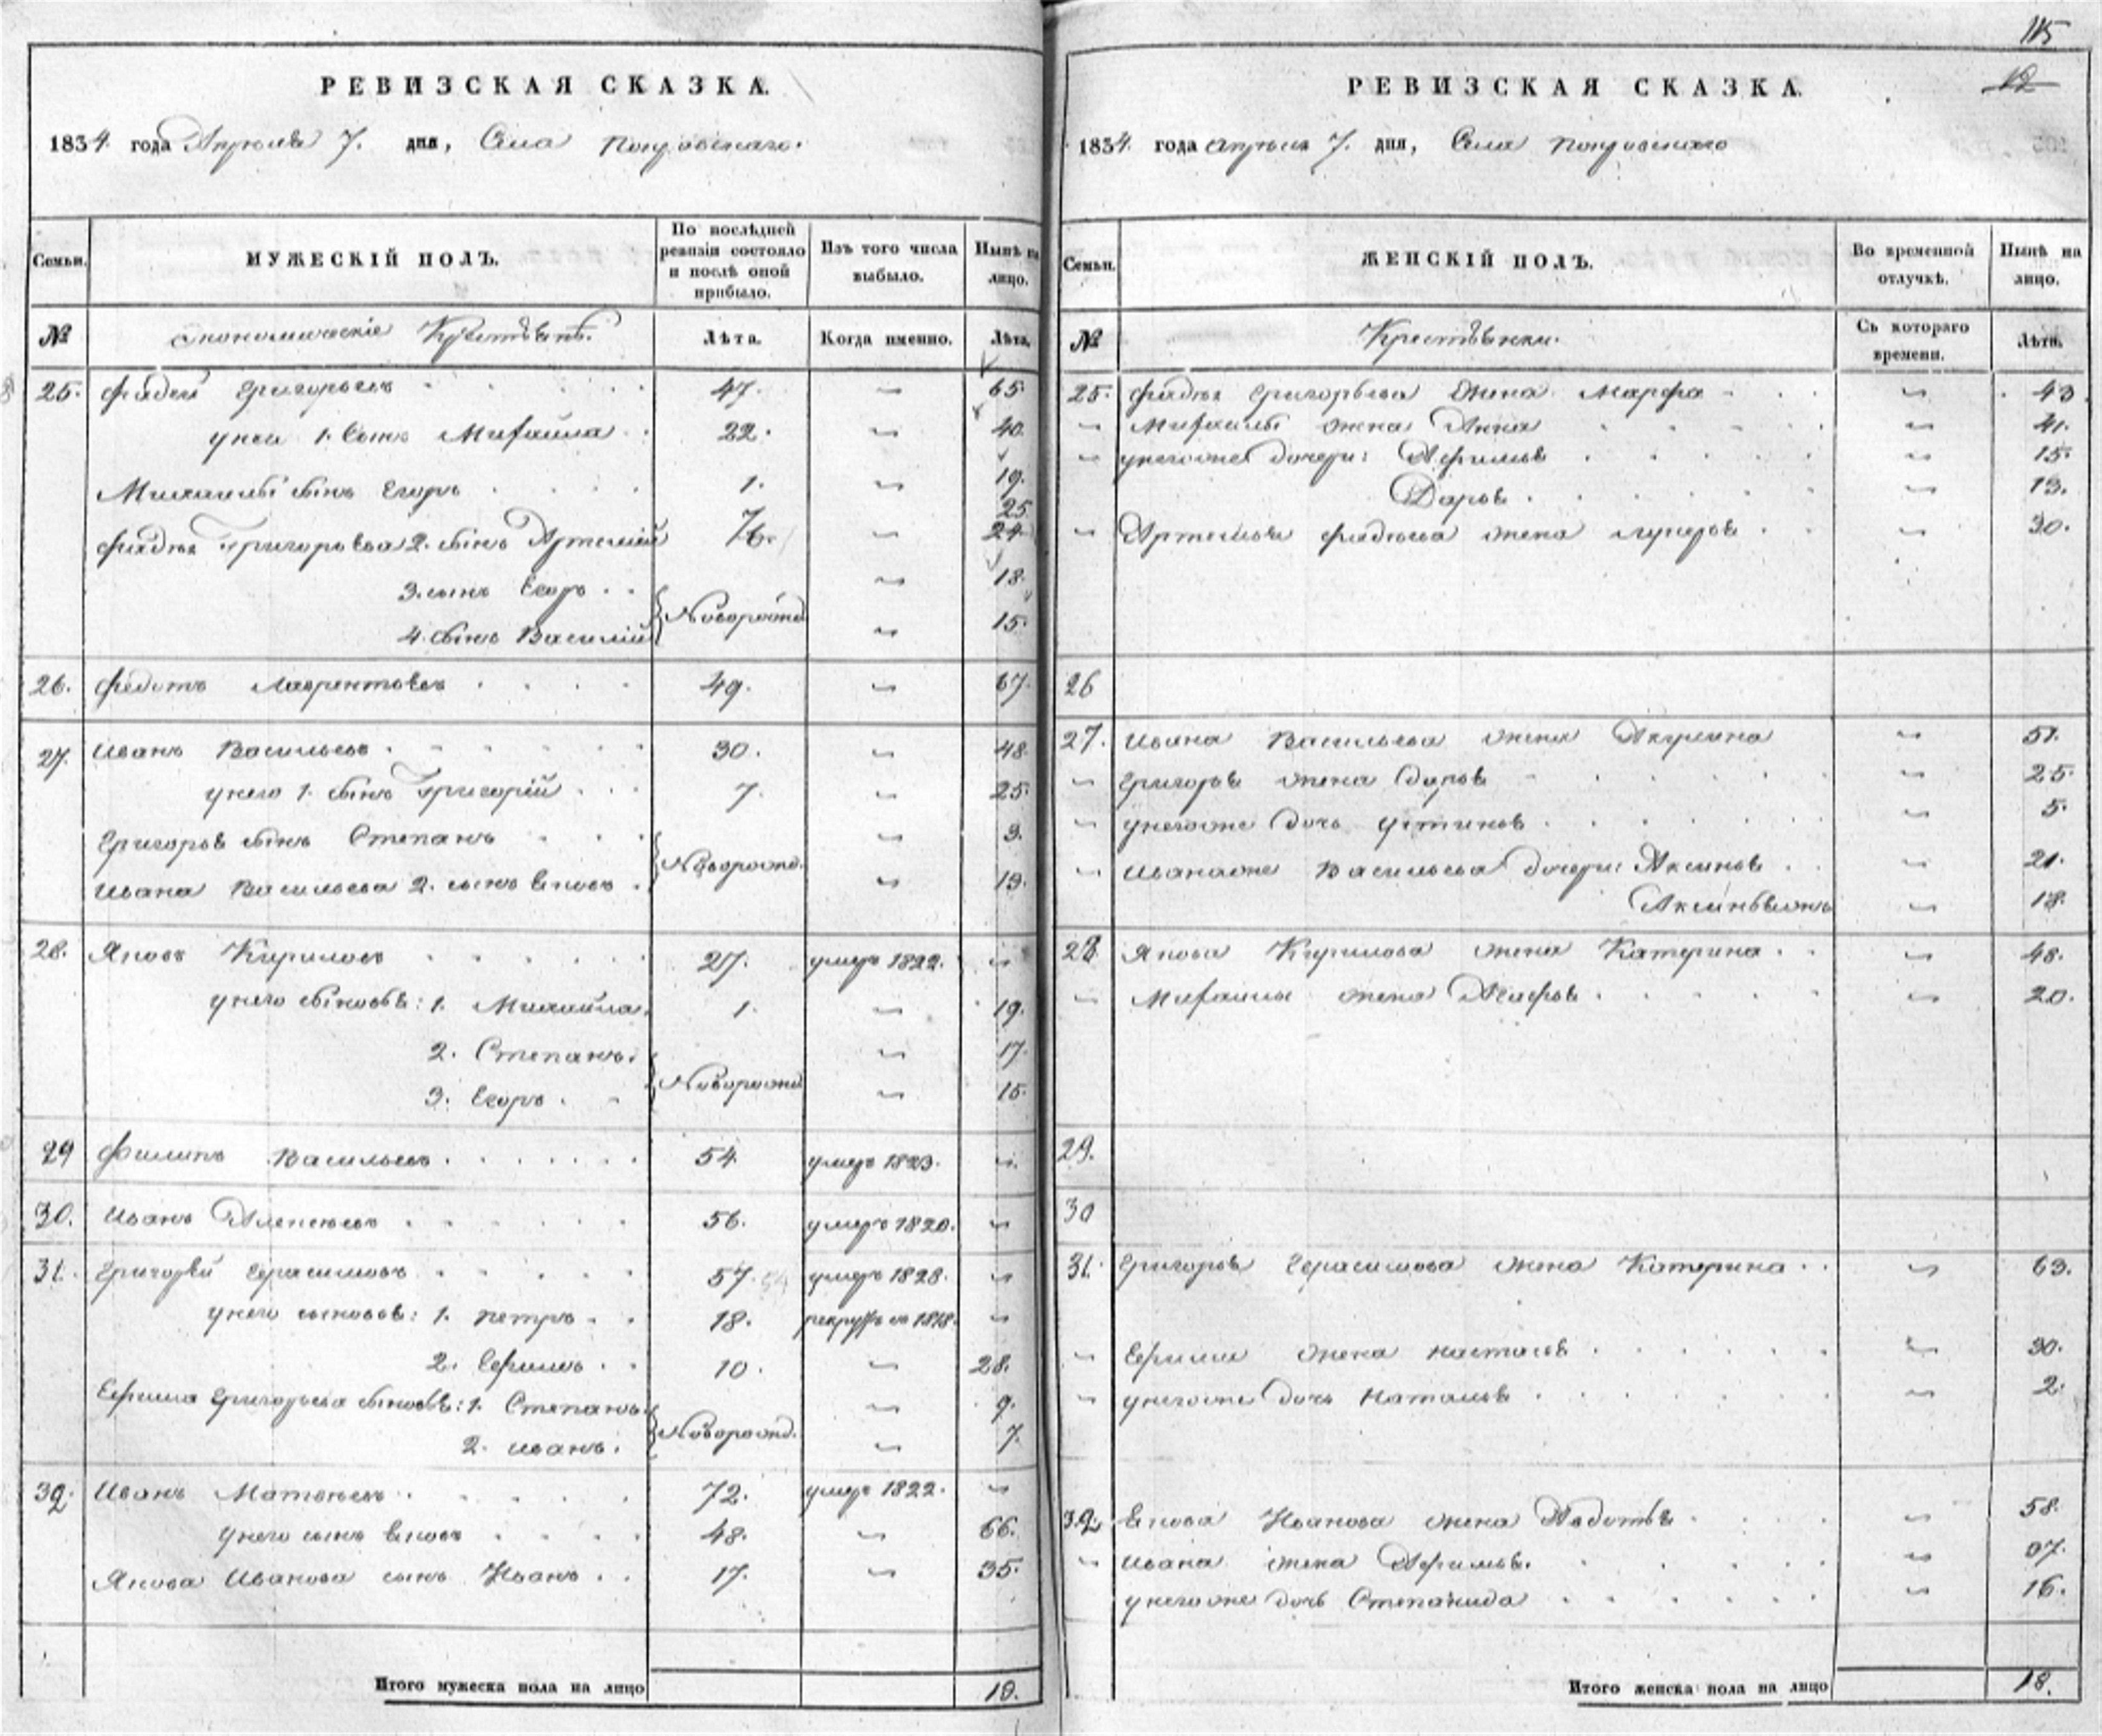 115
12
РЕВИЗСКАЯ СКАЗКА.
1834 года Апреля 7. дня, Села Покровскаго.
Семьи. МУЖЕСКІЙ ПОЛЪ. По послѣдней ревизіи состояло и послѣ оной прибыло. Изъ того числа выбыло. Нынѣ на лицо.
№ Экономическіе Крестьянѣ. Лѣта. Когда именно. Лѣта.
25. Фадей Григорьевъ 47. 65.
у него 1. сынъ Михайла 22. 40.
Михайлы сынъ Егоръ 1. 19.
25
Фадея Григорьева 2. сынъ Артемій 24.
3. сынъ Егоръ 18.
Новорожд.
4. сынъ Василій 15.
26. Федотъ Лаврентьевъ 49. 67.
27. Иванъ Васильевъ 30. 48.
у него 1. сынъ Григорій 7. 25.
Григорья сынъ Степанъ 3.
Новорожд.
Ивана Васильева 2. сынъ Яковъ 13.
28. Яковъ Кириловъ 27. умеръ 1822.
у него сыновья: 1. Михайла. 1. 19.
2. Степанъ. 17.
Новорожд.
3. Егоръ 15.
29 Филипъ Васильевъ 54. умеръ 1823.
30. Иванъ Алексѣевъ 56. умеръ 1820.
31. Григорей Герасимовъ 57. умеръ 1828.
у него сыновья: 1. Петръ 18. рекрутъ въ 1818.
2. Ефимъ 10. 28.
Ефима Григорьева сыновья: 1. Степанъ 9.
Новорожд.
2. Иванъ. 7.
32. Иванъ Матвѣевъ 72. умеръ 1822.
у него сынъ Яковъ 48. 66.
Якова Иванова сынъ Иванъ 17. 35.
Итого мужеска пола на лицо 19.
РЕВИЗСКАЯ СКАЗКА.
1834 года апреля 7. дня, Села Покровскаго
Семьи. ЖЕНСКІЙ ПОЛЪ. Во временной отлучкѣ. Нынѣ на лицо.
№ Крестьянки. Съ котораго времени. Лѣта.
25. Фадея Григорьева жена Марфа 43
Михайлы жена Анна 41.
у него же дочери: Афимья 15.
Дарья 13.
Артемья Фадеева жена Лукерья 30.
26
27. Ивана Васильева жена Акулина 51.
Григорья жена Дарья 25.
у него же дочь Устинья 5.
Ивана же Васильева дочери: Аксинья 21.
18.
28. Якова Кирилова жена Катерина 48.
Михайлы жена Агафья 20.
29.
30
31. Григорья Герасимова жена Катерина 63.
Ефима жена Настасья 30.
у него же дочь Наталья 2.
32. Якова Иванова жена Авдотья 58.
Ивана жена Афимья. 37.
у него же дочь Степанида 16.
Итого женска пола на лицо 18.